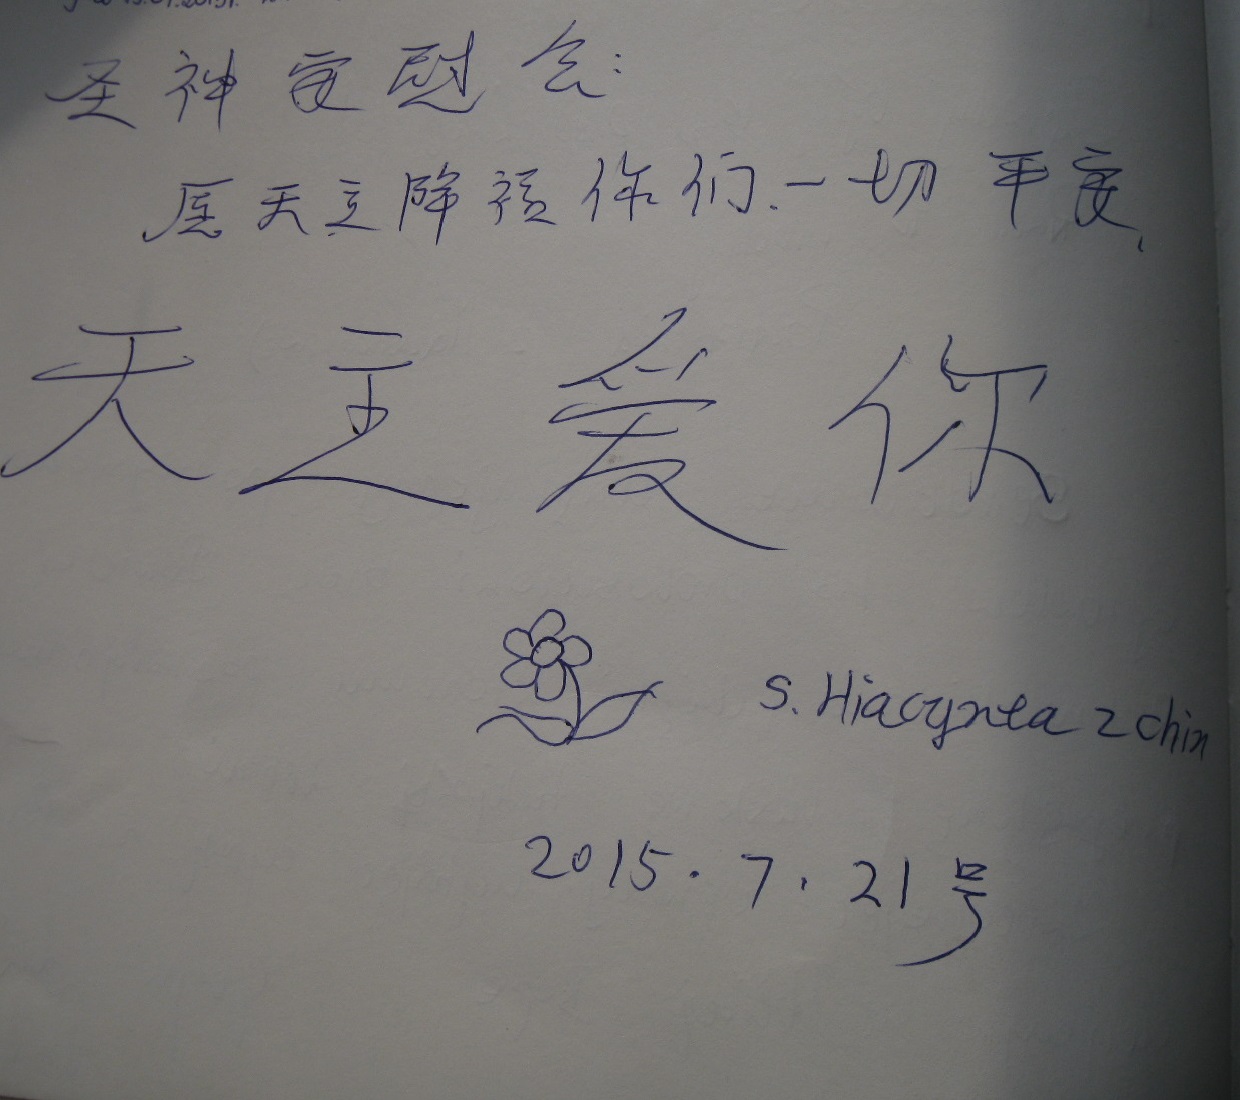 圣神安慰会:
愿天主降福你们.一切平安,
天主爱你
S. Hiacynta z Chin
2015.7.21号